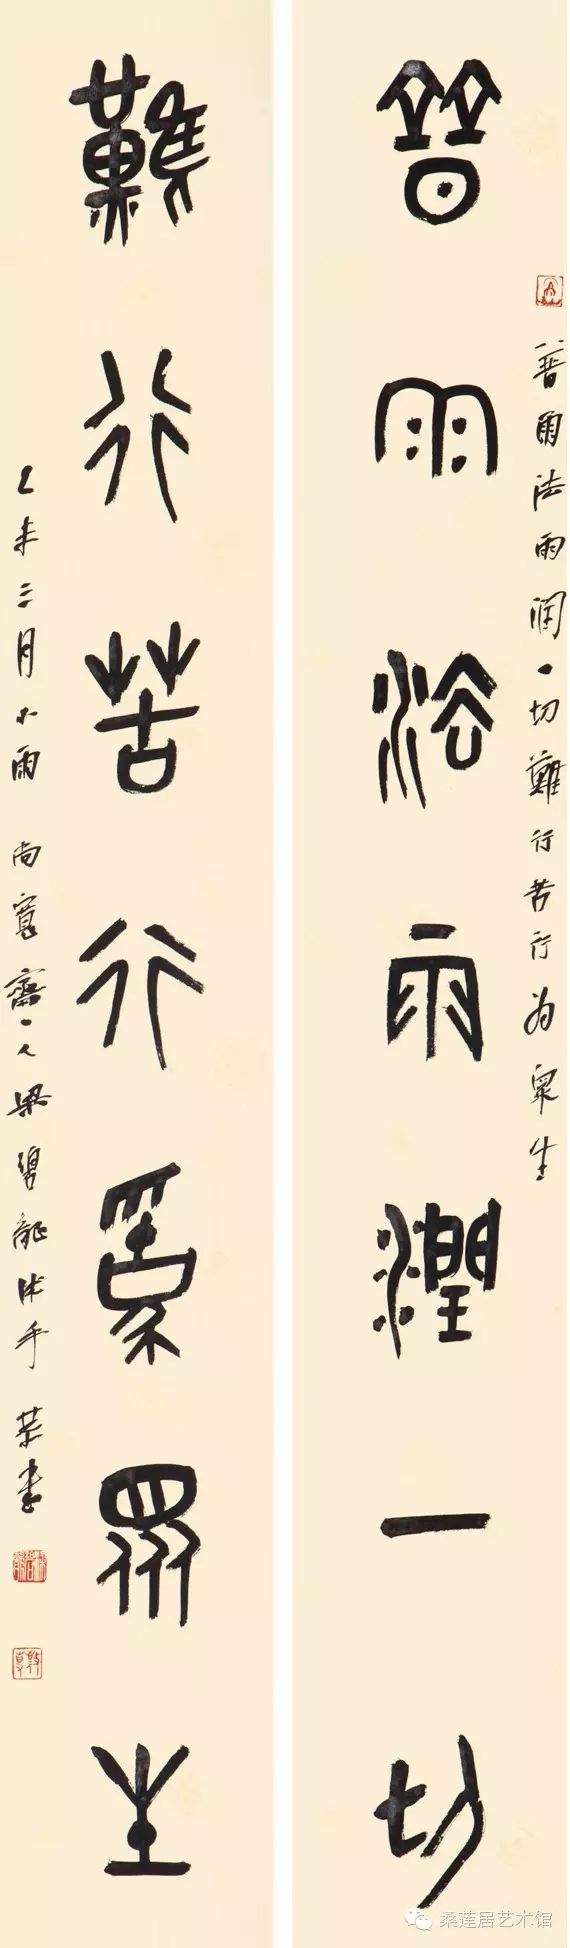 普雨法雨润一切難行苦行为眾生
普雨法雨潤一切
難行苦行為眾生
乙未三月小雨 尚寬齋主人梁碧龍沐手 恭書
桑莲居艺术馆